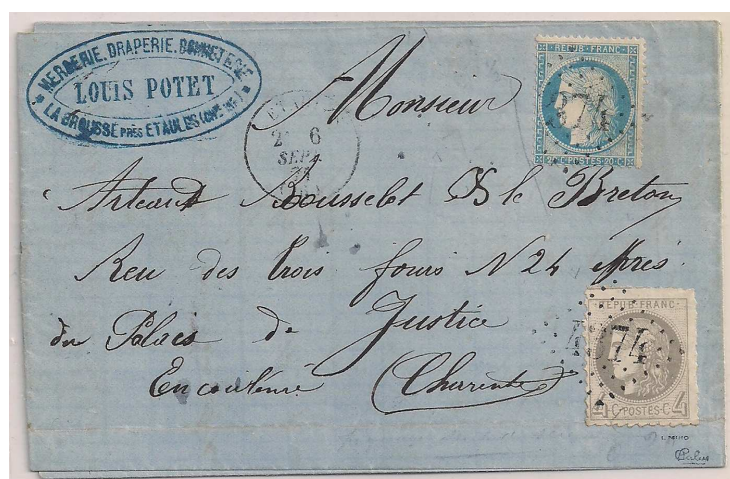 MERCERIE. DRAPERIE. BONNETERIE
LOUIS POTET
LA BROUSSE PRÈS ETAULES (CHTE INFRE)
6
SEPT
71
REPUB. FRANC.
POSTES 20 C
Monsieur
Arteaud Rousselet & le Breton
Reu des trois fours N 24 Près
du Palais de Justice
(Charente)
REPUB. FRANC.
4 C POSTES C 4
Calves